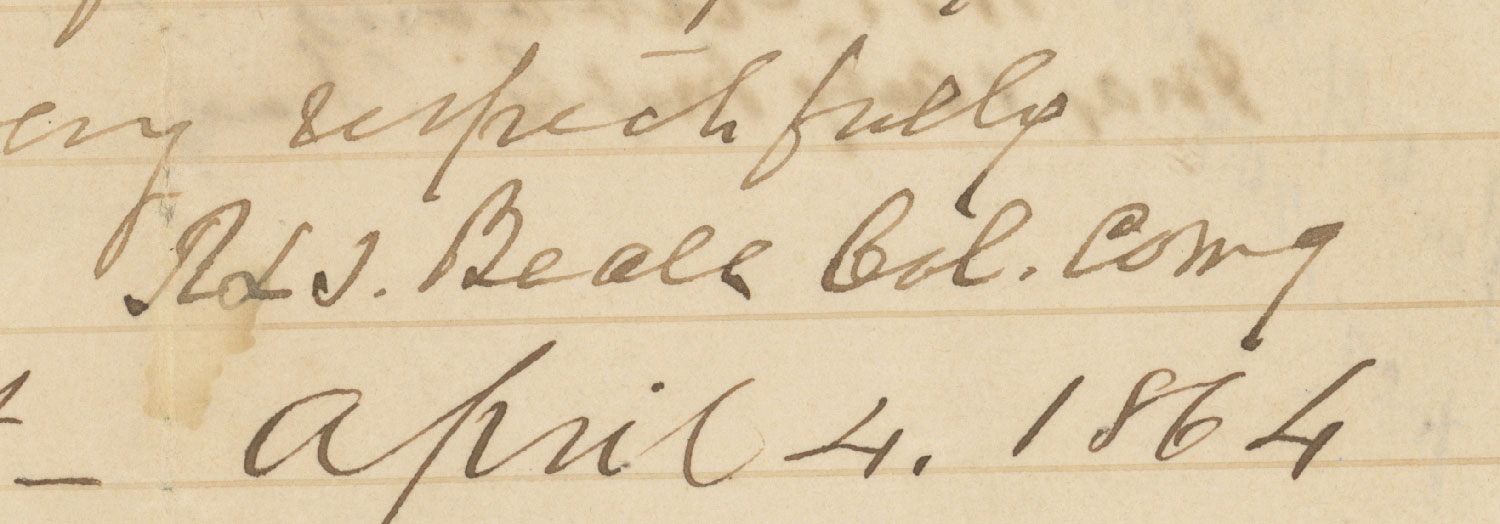 ery respectfully
R L T. Beale Col. Comg
April 4. 1864